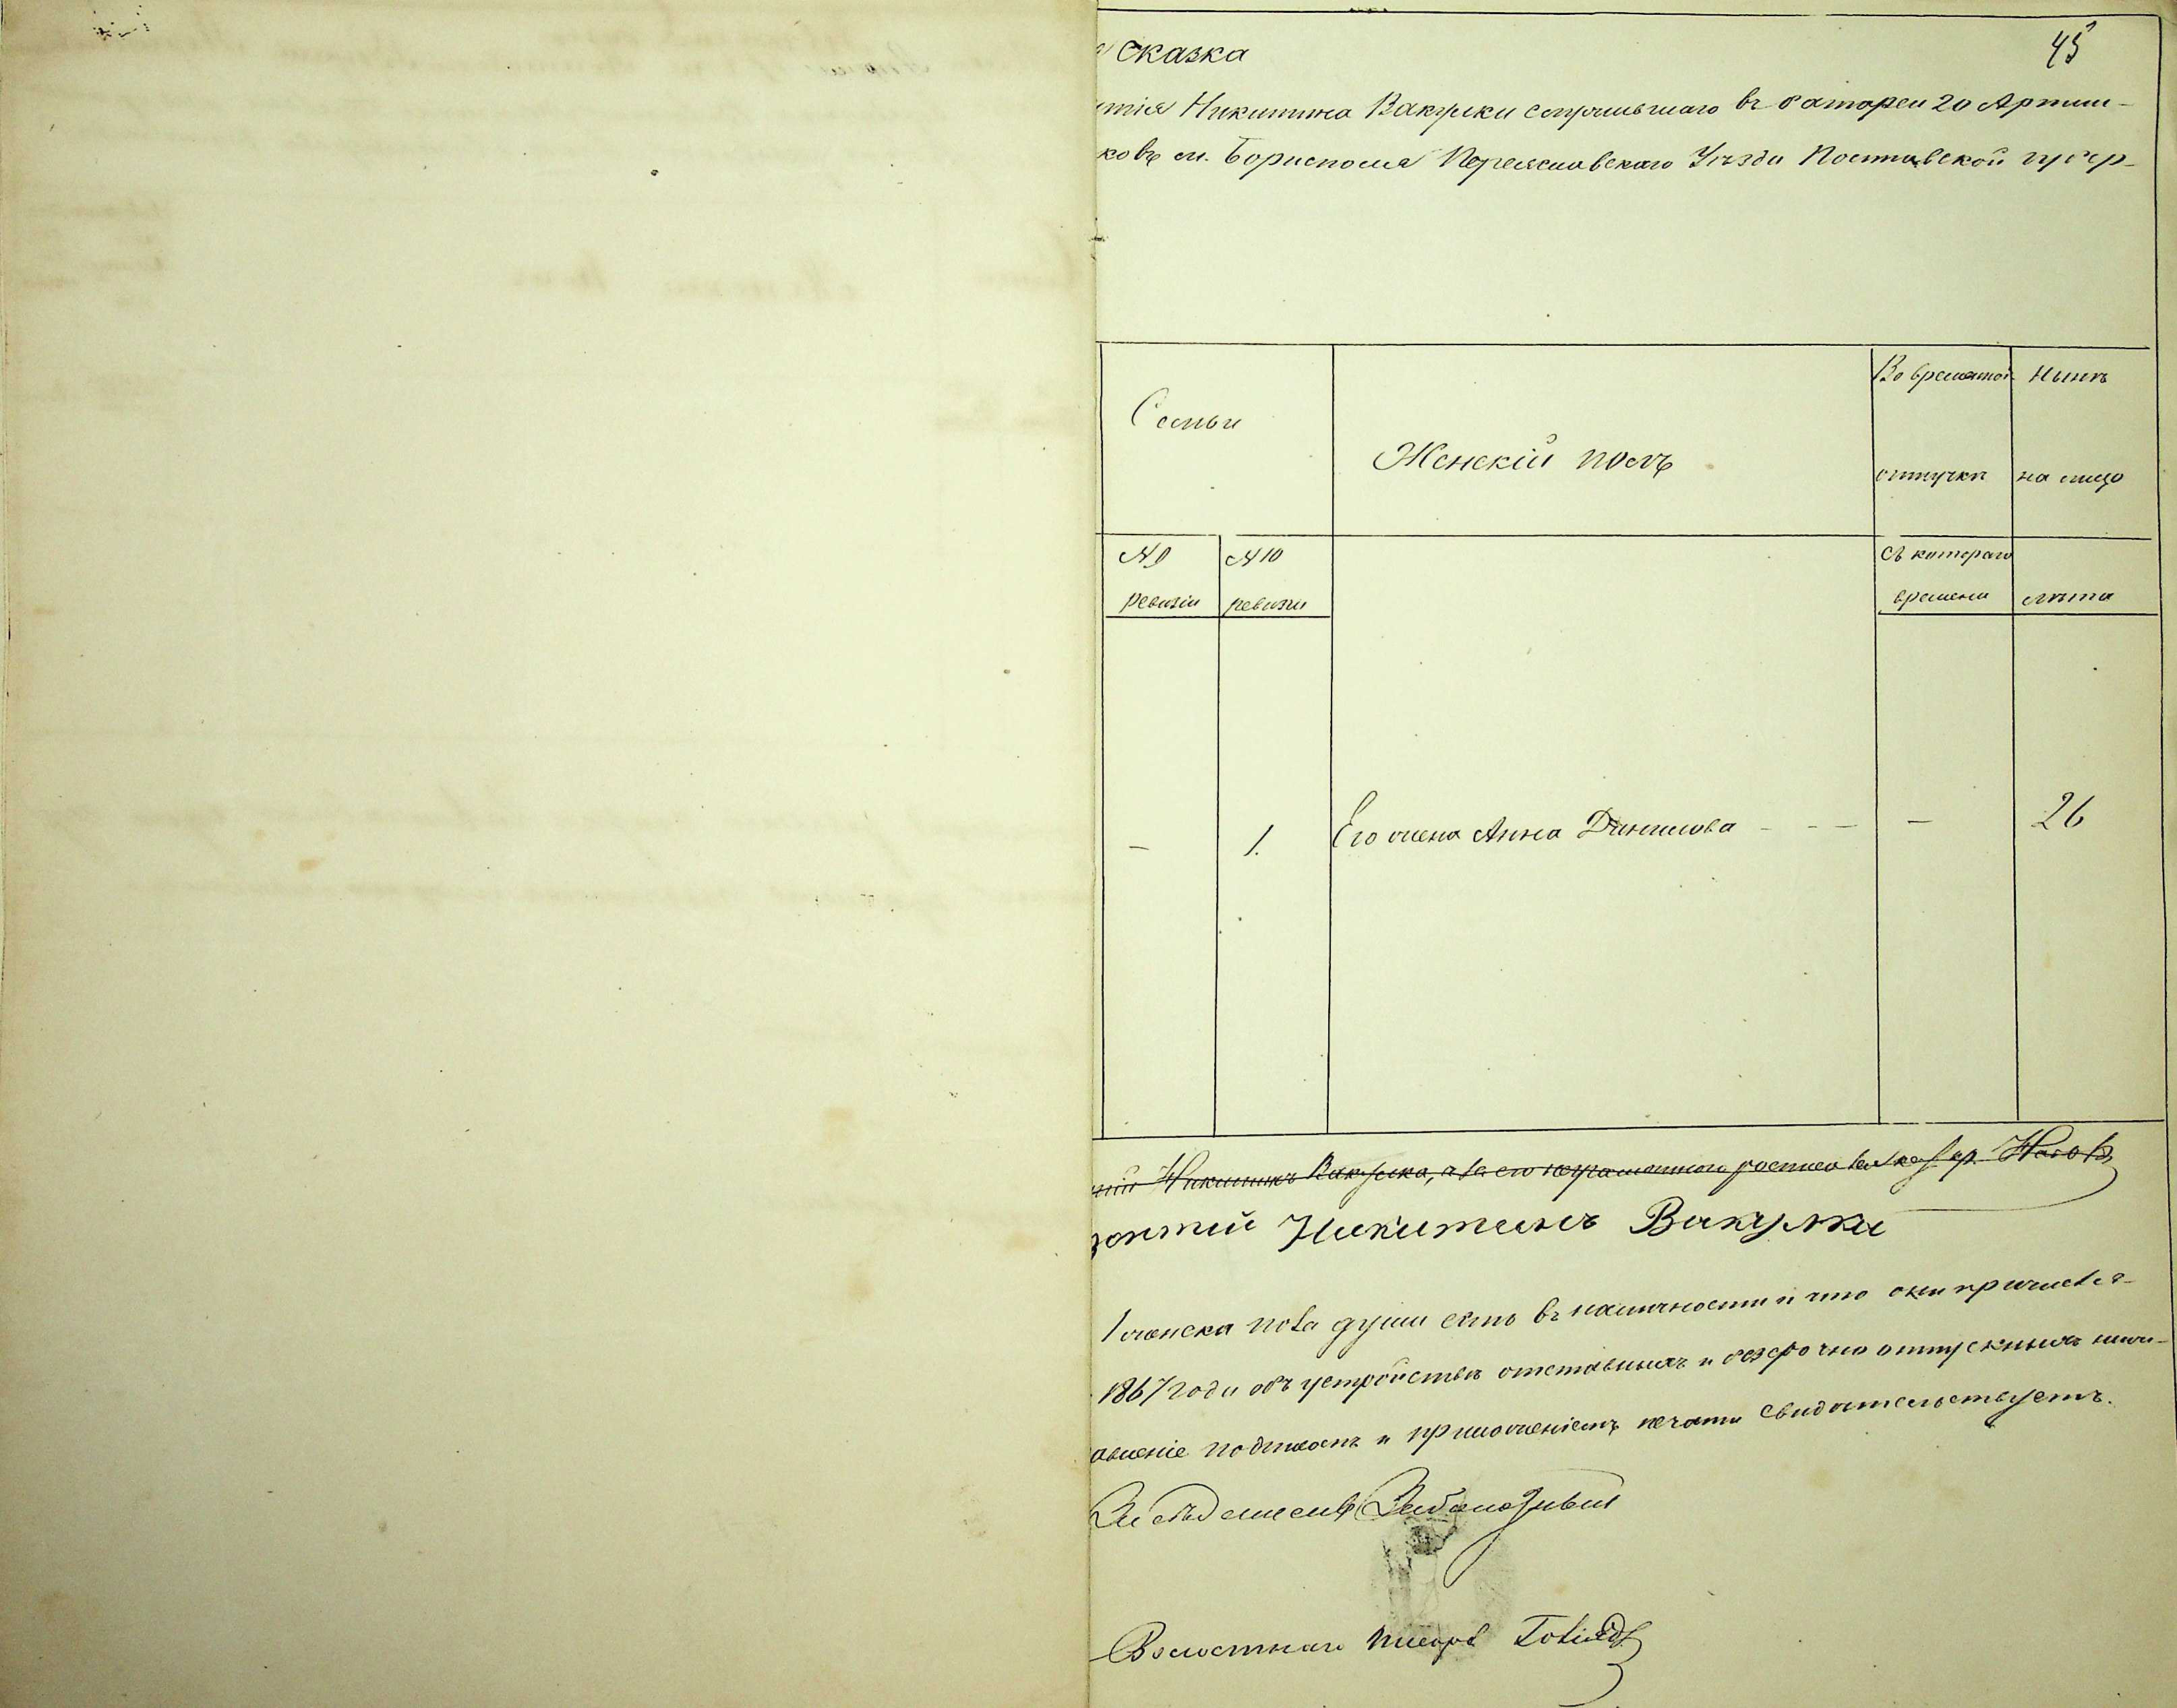 сказка
45
Никитина Вакулки служившаго въ батареи 20 Артил-
ковъ м. Борисполя Переяславскаго Уѣзда Полтавской губер-
Семьи
Женскій полъ
Во временной отлучкѣ
Нынѣ на лицо
№ 9 ревизіи
№ 10 ревизіи
Съ котораго времени
лѣта
—
1.
Его жена Анна Данилова - - -
—
26
Никитинъ Вакулка, а за его неграмотного росписался
Никитинъ Вакулка
1 женска пола души есть въ наличности и что они причисле-
1867 года объ устройствѣ отставныхъ и безсрочно отпускныхъ нижн-
авленіе подписомъ и приложеніемъ печати свидѣтельствуетъ.
Волостной писарь